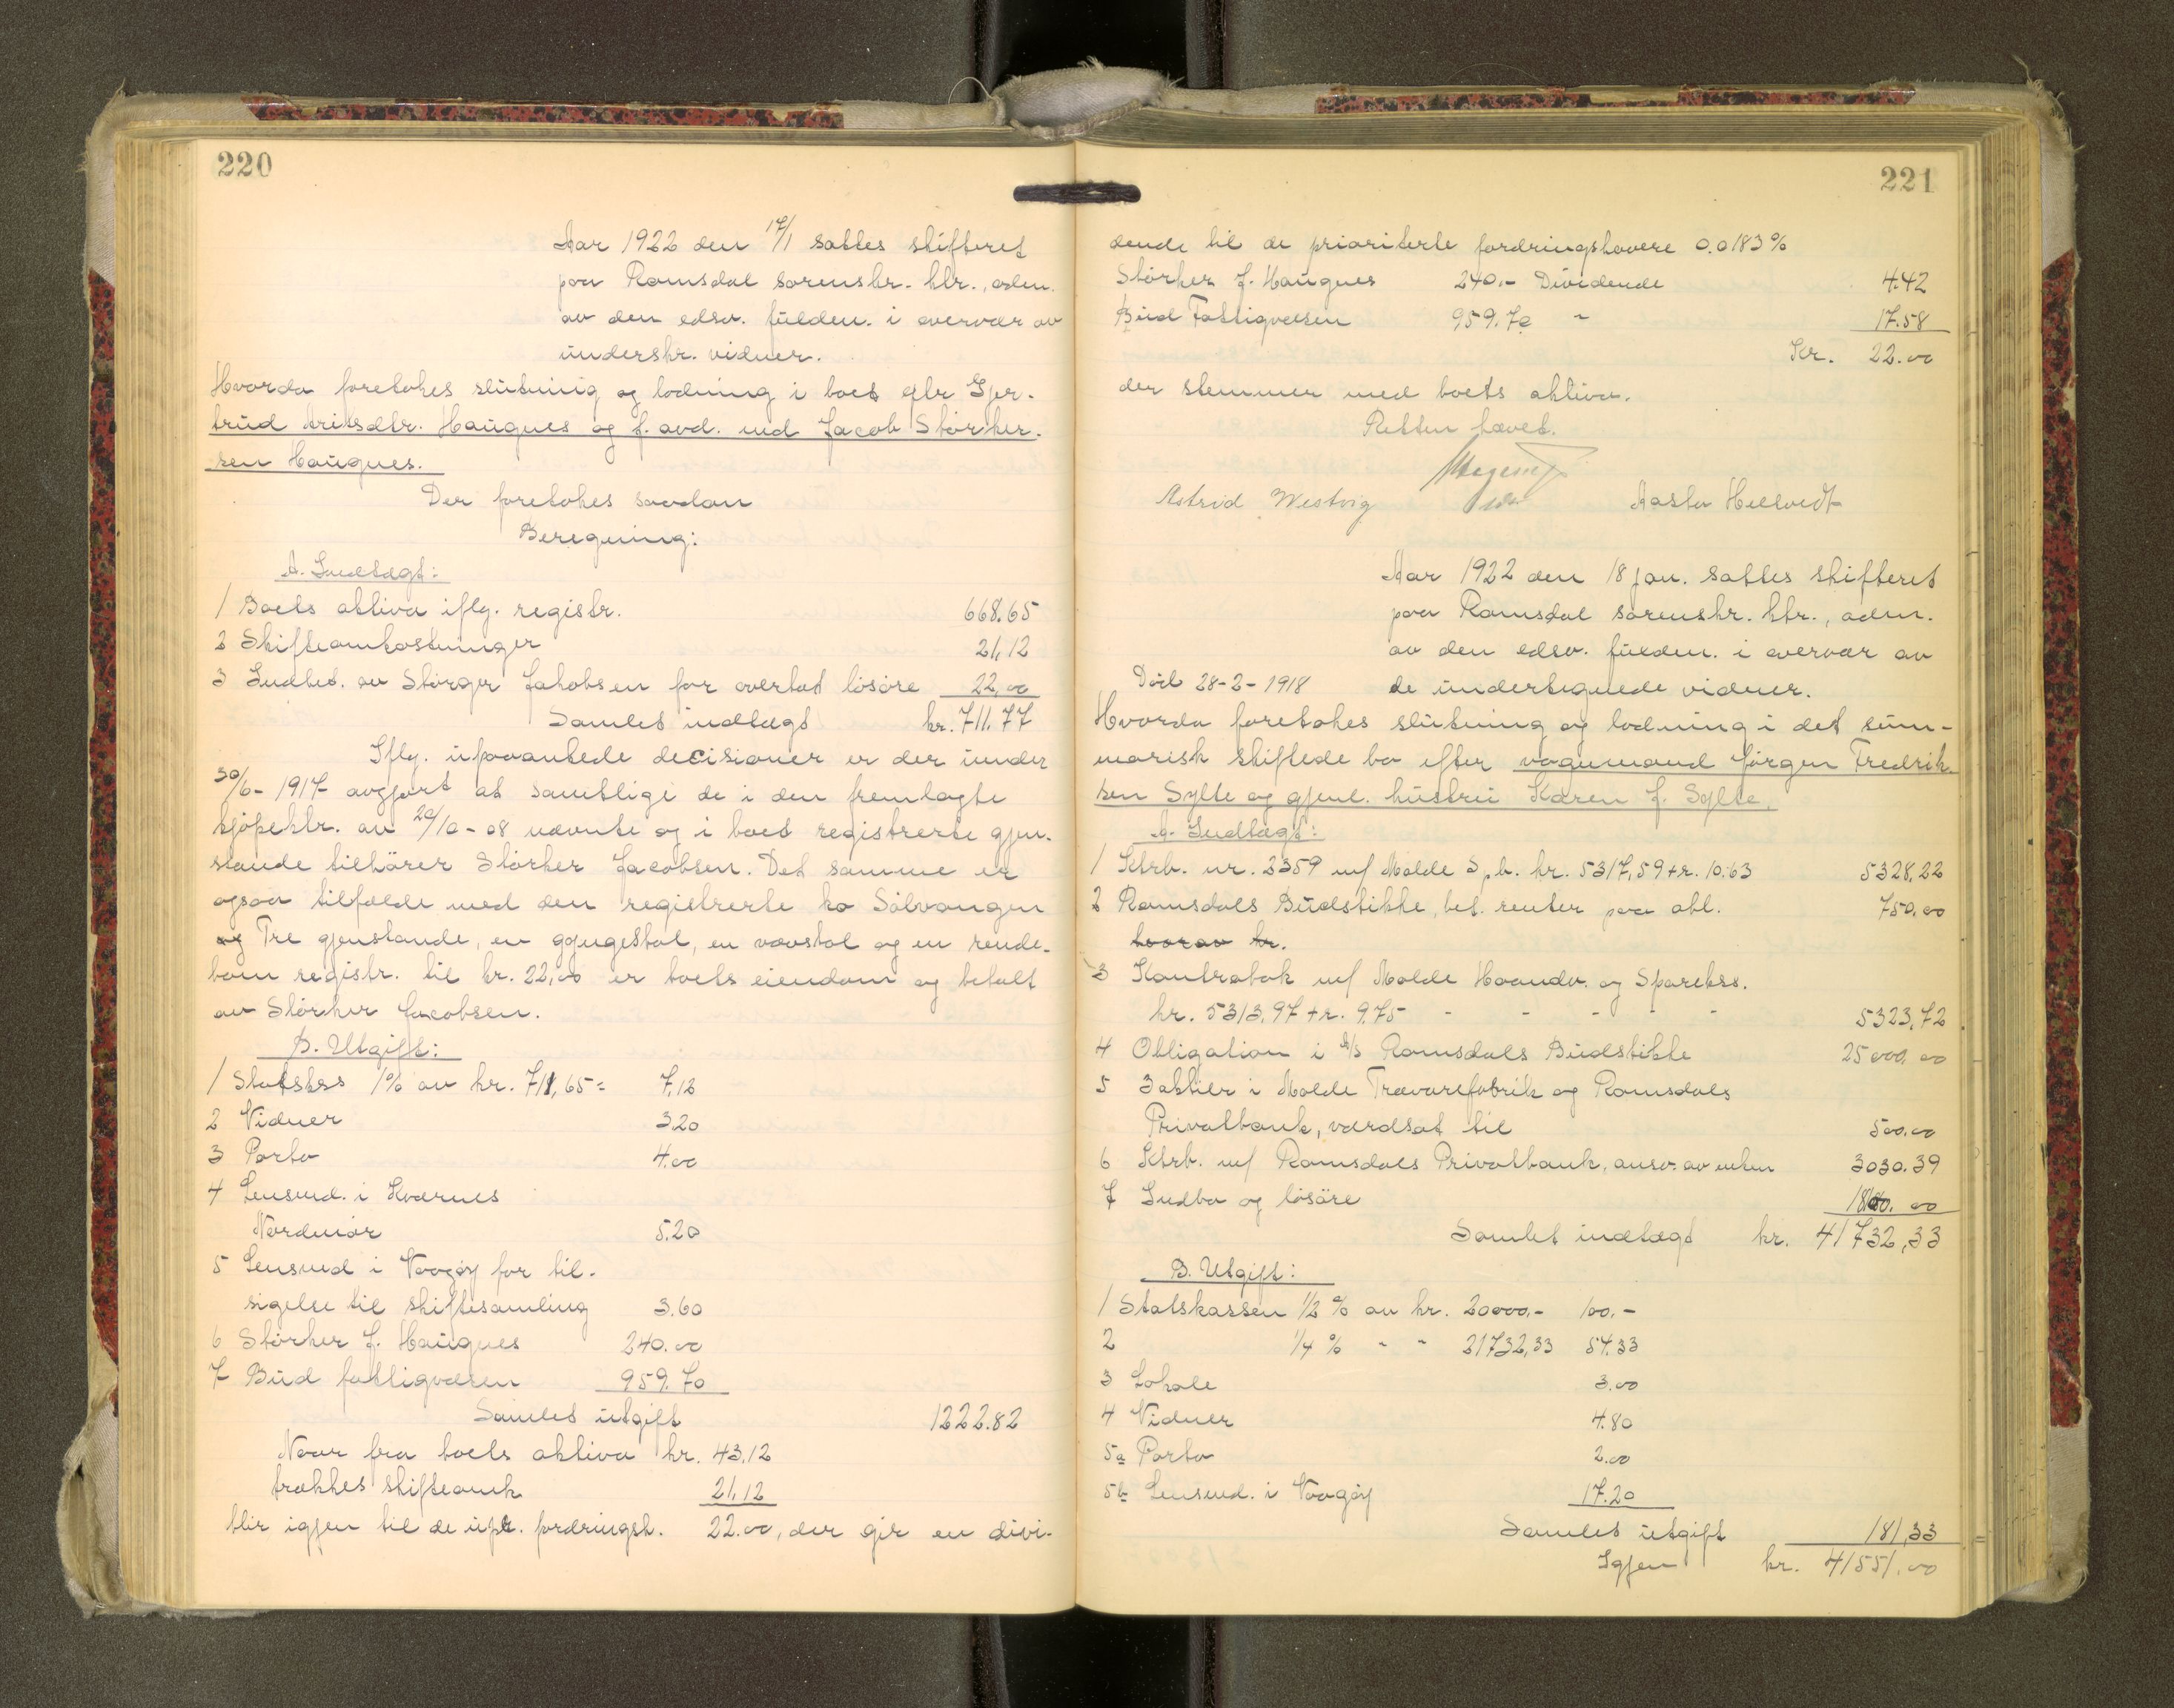 220
Aar 1922 den 17/1 sattes skifteret
paa Romsdal sorenskr. ktr., adm.
av den edsv. fuldm. i overvær av
underskr. vidner.
Hvorda foretokes slutning og lodning i boet eftr Gjer-
trud Eriksdtr. Haugnes og f. avd. md Jacob Størker-
sen Haugnes.
Der foretokes saadan
Beregning:
A. Indtægt:
1 Boets aktiva iflg. registr. 668.65
2 Skifteomkostninger 21,12
3 Indbet. av Størger Jakobsen for overtat løsøre 22,00
Samlet indtægt kr. 711.77
Iflg. upaaankede decisioner er der under
30/6-1917 avgjort at samtlige de i den fremlagte
kjøpektr. av 20/10-08 nævnte og i boet registrerte gjen-
stande tilhører Størker Jacobsen. Det samme er
ogsaa tilfælde med den registrerte ko Sølvongen
og Tre gjenstande, en gyngestol, en vævstol og en rende-
bom registr. til kr. 22,00 er boets eiendom og betalt
av Størker Jacobsen.
B. Utgift:
1 Statskss 1% av kr. 711,65= 7,12
2 Vidner 3.20
3 Porto 4.00
4 Lensmd. i Kværnes
Nordmør 5.20
5 Lensmd i Vaagøy for til-
sigelse til skiftesamling 3.60
6 Størker J. Haugnes 240.00
7 Bud fattigvæsen 959.70
Samlet utgift 1222.82
Naar fra boets aktiva kr. 43,12
trækkes skifteomk 21,12
blir igjen til de upr. fordringsh. 22.00, der gir en divi-
221
dende til de prioriterte fordringshavere 0.0183%
Størker J. Haugnes 240.- Dividende 4.42
Bud Fattigvæsen 959.70 " 17.58
Kr. 22.00
der stemmer med boets aktiva.
Retten hævet.
Astrid Westvig Aasta Hellvedt
Aar 1922 den 18 jan. sattes skifteret
paa Romsdal sorenskr. ktr., adm.
av den edsv. fuldm. i overvær av
Død 28-2-1918 de undertegnede vidner.
Hvorda foretokes slutning og lodning i det sum-
marisk skiftede bo efter vognmand Jørgen Fredrik-
sen Sylte og gjenl. hustru Karen J. Sylte.
A. Indtægt:
1 Ktrb. nr. 2359 m/ Molde Spb. kr. 5317,59+r. 10.63 5328,22
2 Romsdals Budstikke, bet. renter paa obl. 750.00
hvorav kr.
3 Kontrabok m/ Molde Haandv. og Sparekss.
kr. 5313,97+r. 9.75 - - - - - 5323,72
4 Obligation i A/S Romsdals Budstikke 25000.00
5 3 aktier i Molde Trævarefabrik og Romsdals
Privatbank, værdsat til 500.00
6 Ktrb. m/ Romsdals Privatbank, ansv. av enken 3030.39
7 Indbo og løsøre 1800.00
Samlet indtægt kr. 41732,33
B. Utgift:
1 Statskassen 1/2 % av kr. 20000.- 100.-
2 1/4 % " " 21732,33 54.33
3 Lokale 3.00
4 Vidner 4.80
5a Porto 2.00
5b Lensmd. i Vaagøy 17.20
Samlet utgift 181,33
Igjen kr. 41551.00